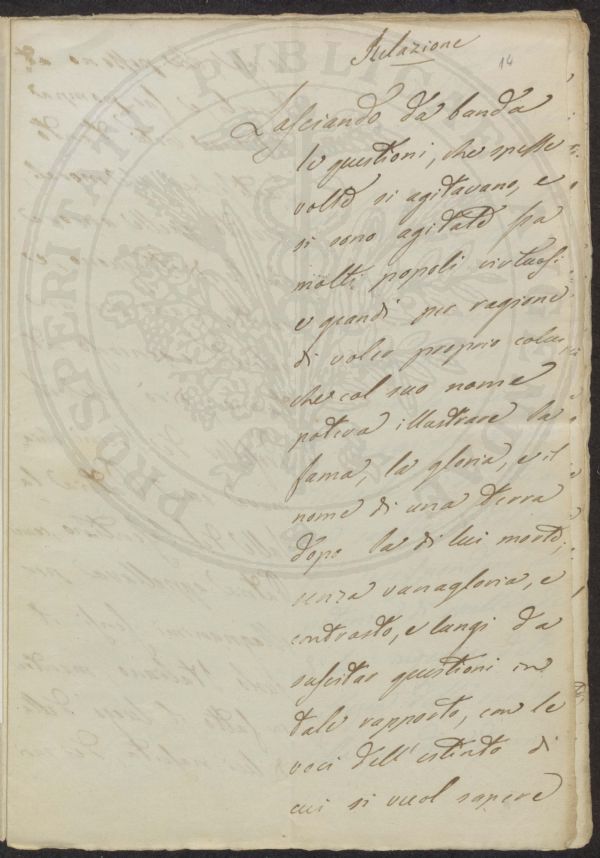 Relazione
14
Lasciando da banda
le questioni, che spesse
volte si agitavano, e
si sono agitate fra
molti popoli virtuosi
e grandi per ragione
di voler proprio colui
che col suo nome
poteva illustrare la
fama, la gloria, e il
nome di una terra
dopo la di lui morte;
senza vanagloria, e
contrasto, e lungi da
suscitar questioni in
tale rapporto, con le
voci dell'estinto di
cui si vuol sapere
PROSPERITATI PUBLICAE AUGENDAE